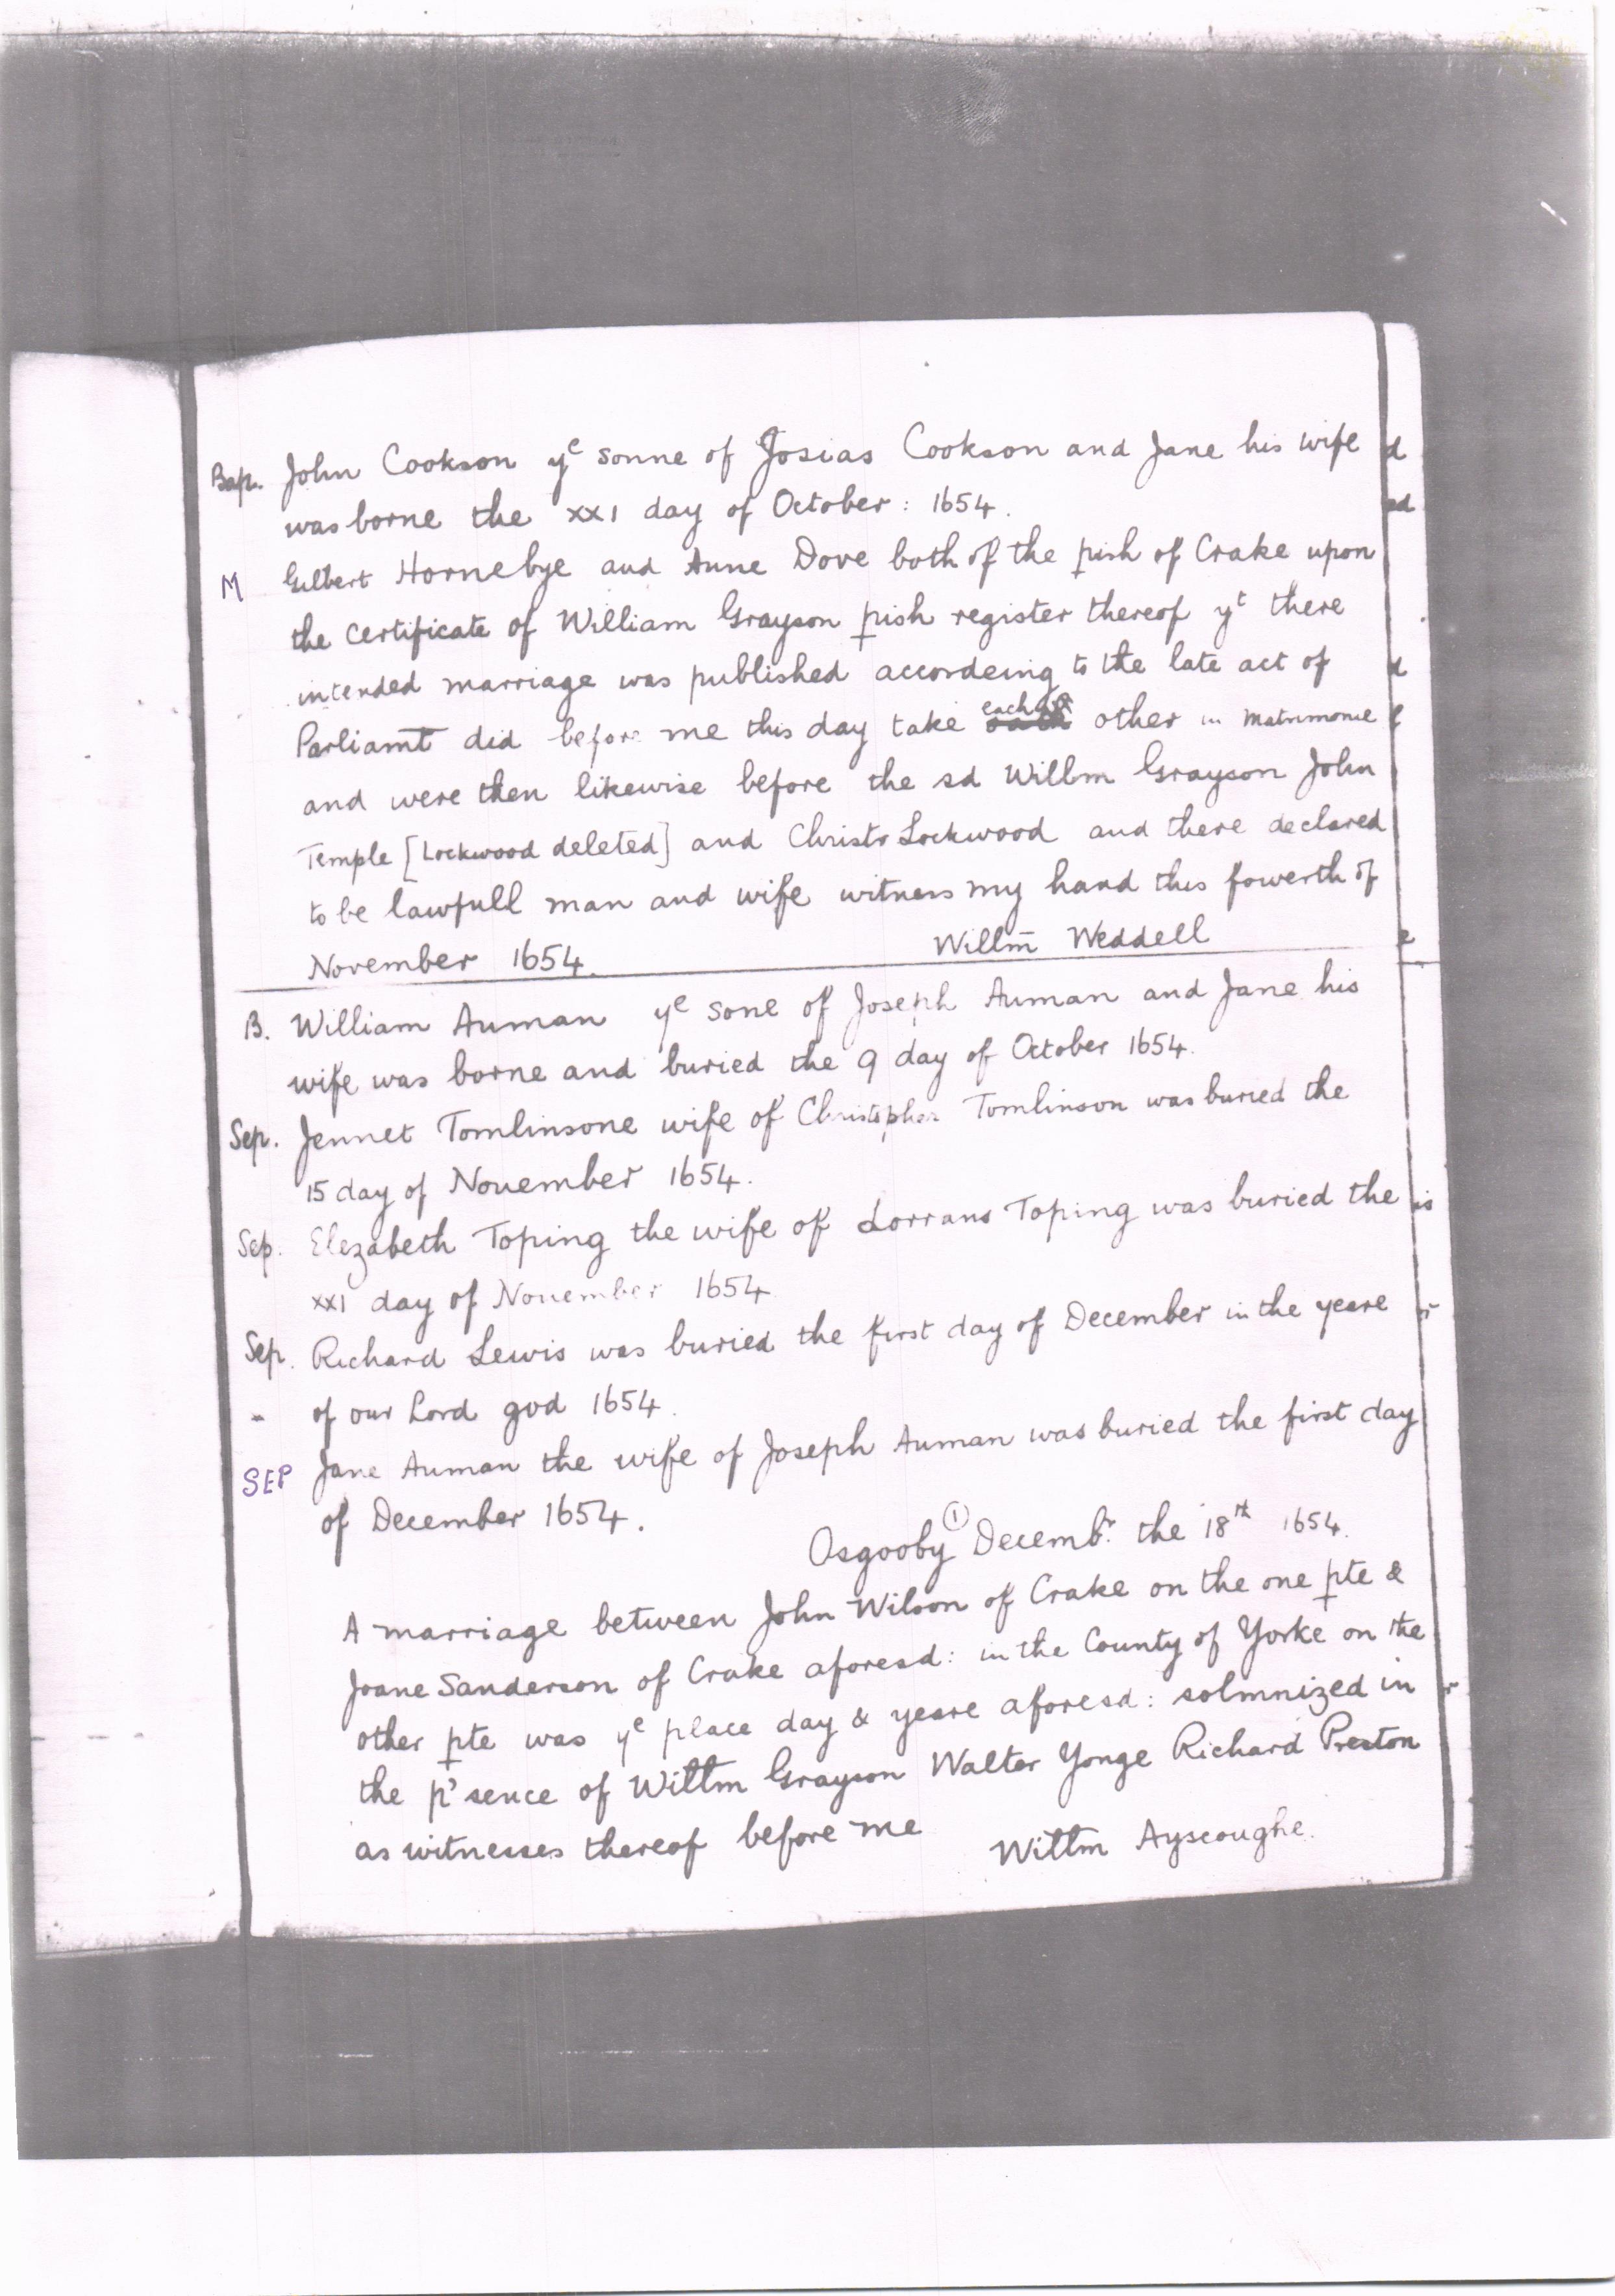 Bap. John Cookson yᵉ sonne of Josias Cookson and Jane his wife
was borne the xxi day of October : 1654.
M Gilbert Hornebye and Anne Dove both of the pish of Crake upon
the certificate of William Grayson pish register thereof yᵗ there
intended marriage was published accordeing to the late act of
Parliamt did before me this day take each other in Matrimonie
and were then likewise before the sd Willm Grayson John
Temple [Lockwood deleted] and Christo Lockwood and there declared
to be lawfull man and wife witness my hand this fowerth of
November 1654. Willm Weddell
B. William Auman yᵉ sone of Joseph Auman and Jane his
wife was borne and buried the 9 day of October 1654.
Sep. Jennet Tomlinsone wife of Christopher Tomlinson was buried the
15 day of November 1654.
Sep. Elezabeth Toping the wife of Lorrans Toping was buried the
xxi day of November 1654
Sep. Richard Lewis was buried the first day of December in the yeare
of our Lord god 1654.
SEP Jane Auman the wife of Joseph Auman was buried the first day
of December 1654.
Osgooby ① Decembʳ. the 18ᵗʰ 1654.
A marriage between John Wilson of Crake on the one pte &
Joane Sanderson of Crake aforesd: in the County of Yorke on the
other pte was yᵉ place day & yeare aforesd: solmnized in
the p'sence of Willm Grayson Walter Yonge Richard Preston
as witnesses thereof before me Willm Ayscoughe.